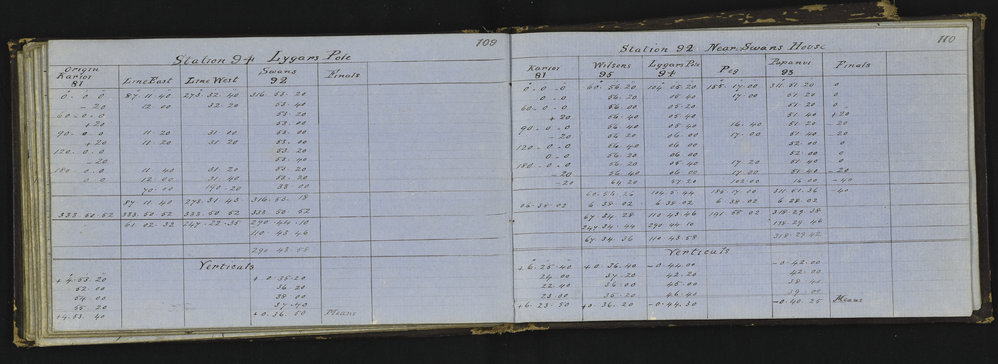 109
Station 94 Lygars Pole
Origin Karioi 81 Line East Line West Swans 92 Finals
0.0.0 87.11.40 273.32.40 316.53.20
-20 12.00 32.20 53.40
60.0.0 53.20
+20 53.00
90.0.0 11.20 31.00 53.00
+20 11.20 31.20 53.00
120.0.0 53.20
-20 53.40
180.0.0 11.40 31.20 53.20
0.0 12.00 31.40 53.20
70.00 190.20 33.00
87.11.40 273.31.43 316.53.18
333.50.52 333.50.52 333.50.52 333.50.52
61.02.32 247.22.35 290.44.10
110.43.46
290.43.58
Verticals
+4.53.20 +0.35.20
52.00 36.20
54.00 38.00
55.20 37.40
+4.53.40 +0.36.50 Means
110
Station 92 Near Swans House
Karioi 81 Wilsons 95 Lygars Pole 94 Peg Papanui 93 Finals
0.0.0 60.56.20 104.05.20 185.17.00 311.51.20 0
0.0 56.20 05.40 17.00 51.20 0
60.0.0 56.00 05.20 51.20 0
+20 56.40 05.40 51.40 +20
90.0.0 56.40 05.40 16.40 51.20 -20
-20 56.20 06.00 17.00 51.40 -20
120.0.0 56.40 06.00 52.00 0
0.0 56.20 06.00 52.00 0
180.0.0 56.20 05.40 17.20 51.40 0
-20 56.40 06.00 17.00 51.40 -20
-20 64.20 57.20 102.00 16.00 -40
60.56.26 104.5.44 185.17.00 311.51.36 -40
06.38.02 6.38.02 6.38.02 6.38.02 6.38.02
67.34.28 110.43.46 191.55.02 318.29.38
247.34.44 290.44.10 138.29.46
67.34.36 110.43.58 318.29.42
Verticals
+6.25.40 +0.36.40 -0.44.00 -0.42.00
24.00 37.20 42.20 42.00
22.40 36.00 45.00 38.40
23.00 35.20 46.40 39.00
+6.23.50 +0.36.20 -0.44.30 -0.40.25 Means